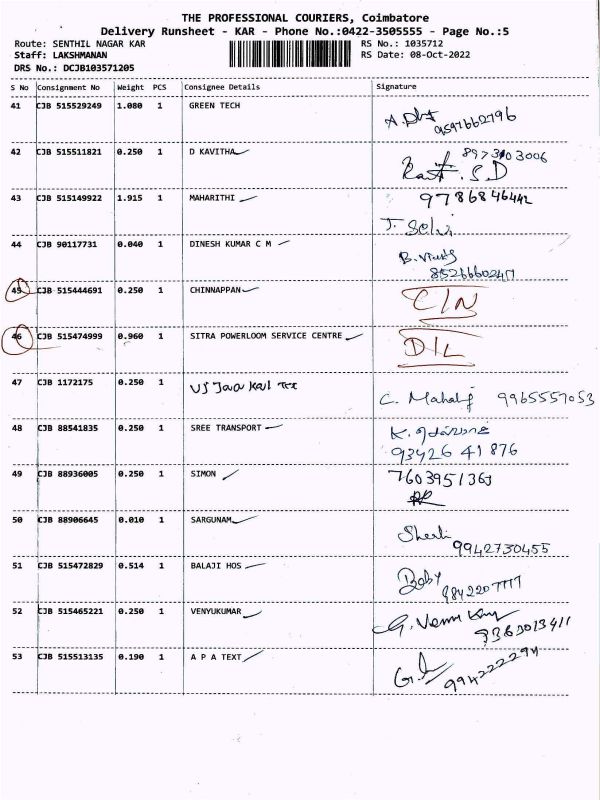 THE PROFESSIONAL COURIERS, Coimbatore
Delivery Runsheet - KAR - Phone No.:0422-3505555 - Page No.:5
Route: SENTHIL NAGAR KAR RS No.: 1035712
Staff: LAKSHMANAN RS Date: 08-Oct-2022
DRS No.: DCJB103571205
S No Consignment No Weight PCS Consignee Details Signature
41 CJB 515529249 1.080 1 GREEN TECH
9597660796
42 CJB 515511821 0.250 1 D KAVITHA 8973103006
S.D
43 CJB 515149922 1.915 1 MAHARITHI 9786846442
J. Selvi
44 CJB 90117731 0.040 1 DINESH KUMAR C M B.
8526660247
45 CJB 515444691 0.250 1 CHINNAPPAN C/N
46 CJB 515474999 0.960 1 SITRA POWERLOOM SERVICE CENTRE D/L
47 CJB 1172175 0.250 1 C. 9965557053
48 CJB 88541835 0.250 1 SREE TRANSPORT K.
93426 41 876
49 CJB 88936005 0.250 1 SIMON 7603951363
50 CJB 88906645 0.010 1 SARGUNAM
9942730455
51 CJB 515472829 0.514 1 BALAJI HOS Baby
52 CJB 515465221 0.250 1 VENYUKUMAR G. Venu
53 CJB 515513135 0.190 1 A P A TEXT